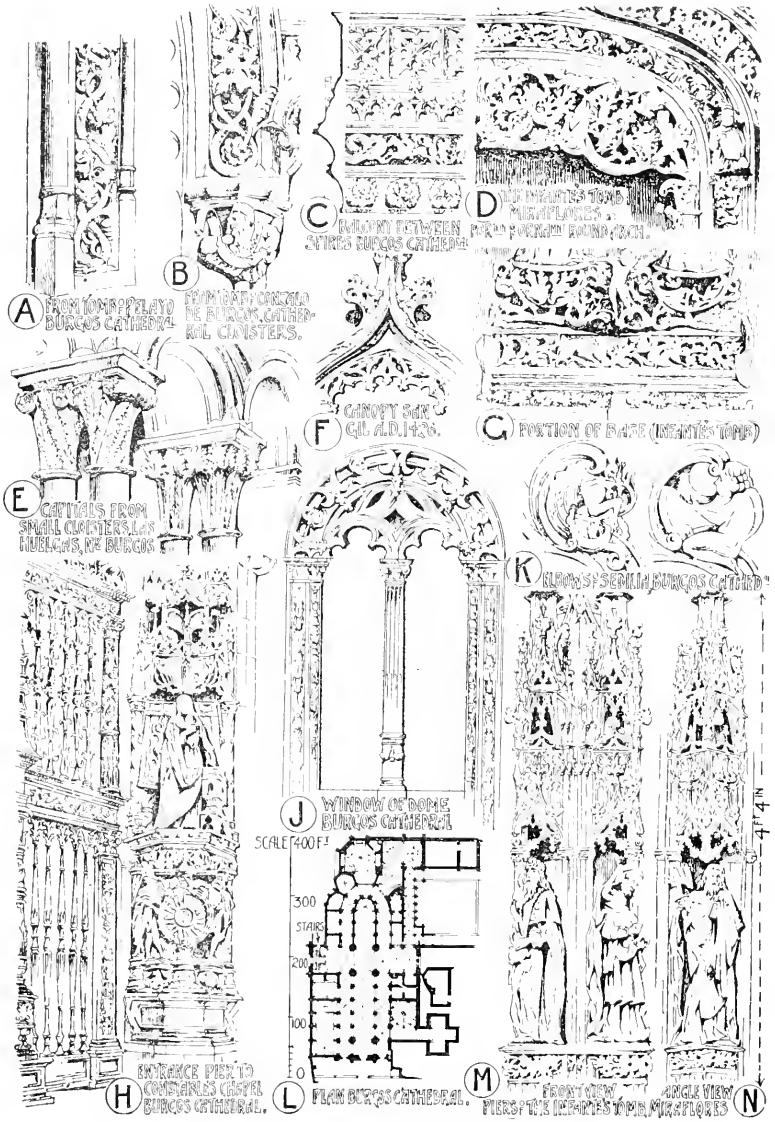 A FROM TOMB OF PELAYO
BURGOS CATHEDRAL
B FROM TOMB OF GONZALO
DE BURGOS, CATHED-
RAL CLOISTERS.
C BALCONY BETWEEN
SPIRES BURGOS CATHEDRAL
D THE INFANTE'S TOMB
MIRAFLORES
ROUND ARCH.
E CAPITALS FROM
SMALL CLOISTERS, LAS
HUELGAS, NR BURGOS
F CANOPY SAN
GIL A.D. 1436.
G PORTION OF BASE (INFANTE'S TOMB)
H ENTRANCE PIER TO
CONSTABLE'S CHAPEL
BURGOS CATHEDRAL.
J WINDOW OF DOME
BURGOS CATHEDRAL
K ELBOWS BURGOS CATHEDL
SCALE 400 FT
300
STAIRS
200
100
0
L PLAN BURGOS CATHEDRAL.
4 FT 4 IN
M FRONT VIEW ANGLE VIEW N
PIERS OF THE INFANTE'S TOMB, MIRAFLORES